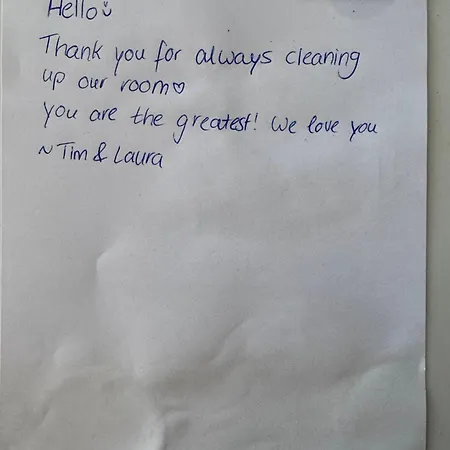 Hello☺
Thank you for always cleaning
up our room♡
you are the greatest! We love you
~Tim & Laura